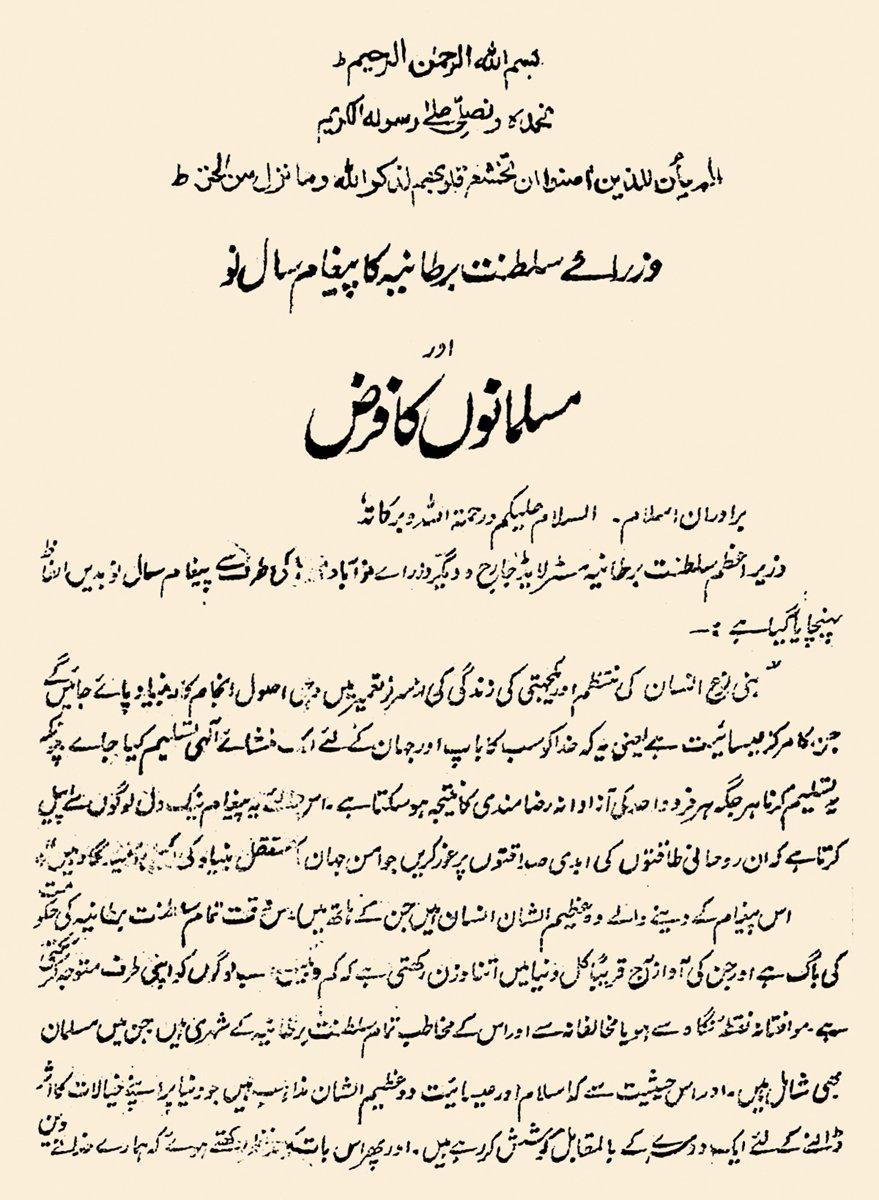 بسم الله الرحمٰن الرحیم ط
نحمده ونصلّی علےٰ رسوله الکریم
الم یأن للذین اٰمنوا ان تخشع قلوبهم لذکر الله وما نزل من الحق ط
وزرائے سلطنت برطانیہ کا پیغام سال نو
اور
مسلمانوں کا فرض
برادران اسلام۔ السلام علیکم ورحمۃ اللہ وبرکاتہٗ
وزیر اعظم سلطنت برطانیہ مسٹر لائیڈ جارج و دیگر وزراے نوآباد کی طرف سے پیغام سال نو بدیں الفاظ
پہنچایا گیا ہے :—
"بنی نوع انسان کی منتظم اور یکجہتی کی زندگی کی از سر نو تعمیر میں وہی اصول انجام کار بنیاد پائے جائیں گے
جن کا مرکز عیسائیت ہے یعنی یہ کہ خدا کو سب کا باپ اور جہان کے لئے ایک منشائے الٰہی تسلیم کیا جاے چونکہ
یہ تسلیم کرنا ہر جگہ ہر فرد واحد کی آزادانہ رضامندی کا نتیجہ ہوسکتا ہے۔ اس لئے یہ پیغام نیک دل لوگوں سے اپیل
کرتا ہے کہ ان روحانی طاقتوں کی ابدی صداقتوں پر غور کریں جو امن جہان مستقل بنیاد کی امید گاہ ہیں"۔
اس پیغام کے دینے والے وہ عظیم الشان انسان ہیں جن کے ہاتھ میں اس وقت تمام سلطنت برطانیہ کی حکومت
کی باگ ہے اور جن کی آواز آج قریبًا کل دنیا میں اتنا وزن رکھتی ہے کہ کم و بیش سب لوگوں کو اپنی طرف متوجہ کر سکتی
ہے۔ موافقانہ نقطہ نگاہ سے ہو یا مخالفانہ سے اور اس کے مخاطب تمام سلطنت برطانیہ کے شہری ہیں جن میں مسلمان
بھی شامل ہیں۔ اور اس حیثیت سے کہ اسلام اور عیسائیت دو عظیم الشان مذاہب ہیں جو دنیا پر اپنے خیالات کا اثر
ڈالنے کے لئے ایک دوسرے کے بالمقابل کوشش کر رہے ہیں۔ اور پھر اس بات کو مد نظر رکھتے ہوئے کہ ہمارے خدائے دین